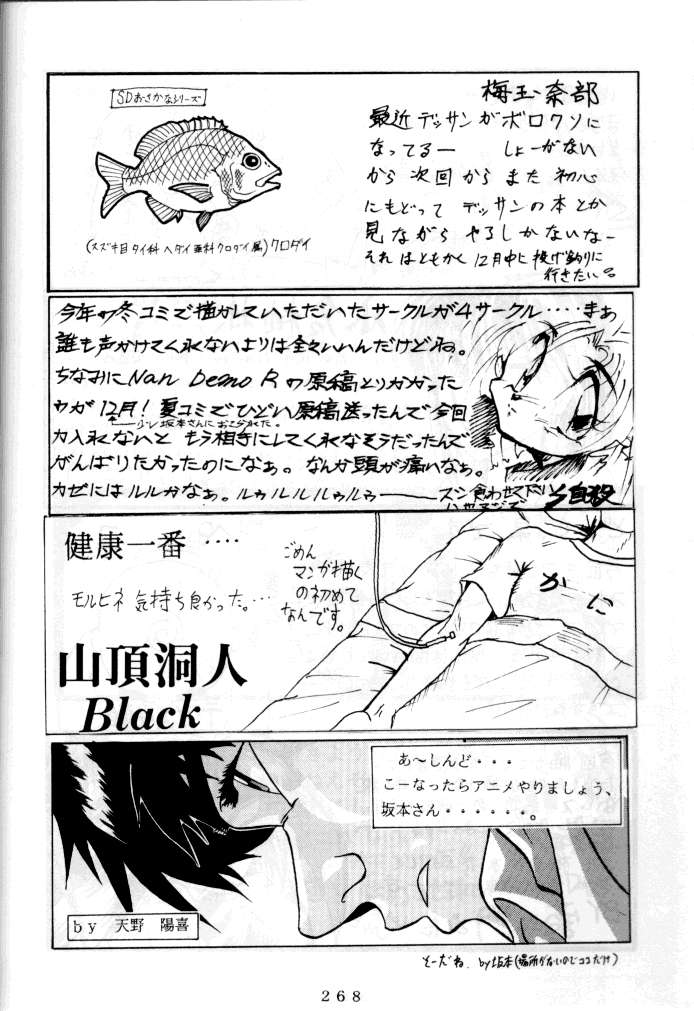 SDおさかなシリーズ
(スズキ目タイ科ヘダイ亜科クロダイ属)クロダイ
梅玉奈部
最近デッサンがボロクソに
なってるー しょーがない
から次回からまた初心
にもどってデッサンの本とか
見ながらやるしかないなー
それはともかく12月中に投げ釣りに
行きたい。
今年の冬コミで描かしていただいたサークルが4サークル‥‥まぁ
誰も声かけてくれないよりは全々いいんだけどね。
ちなみにNan Demo Rの原稿とりかかった
のが12月!夏コミでひどい原稿送ったんで今回
力入れないともう相手にしてくれなそうだったんで
がんばりたかったのになぁ。なんか頭が痛いなぁ。
カゼにはルルかなぁ。ルゥルルルゥルゥ――
健康一番‥‥
モルヒネ気持ち良かった。…
ごめん
マンガ描く
の初めて
なんです。
かに
山頂洞人
Black
あ〜しんど・・・
こーなったらアニメやりましょう、
坂本さん・・・・・・。
by 天野 陽喜
そーだね。by坂本(場所がないのでココだけ)
268